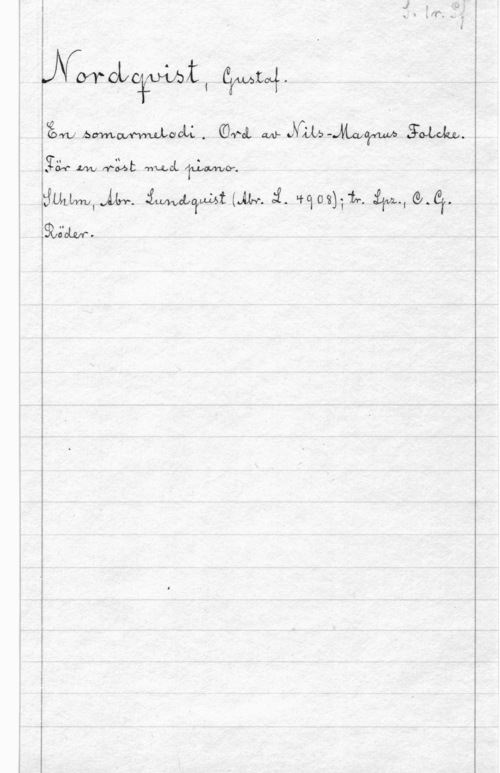 Nordqvist, Gustaf.
En somarmelodi. Ord av Nils-Magnus Folcke.
För en röst med piano.
Sthlm, Abr. Lundquist (Abr. L. 4908); tr. Lpz., C. G.
Röder.